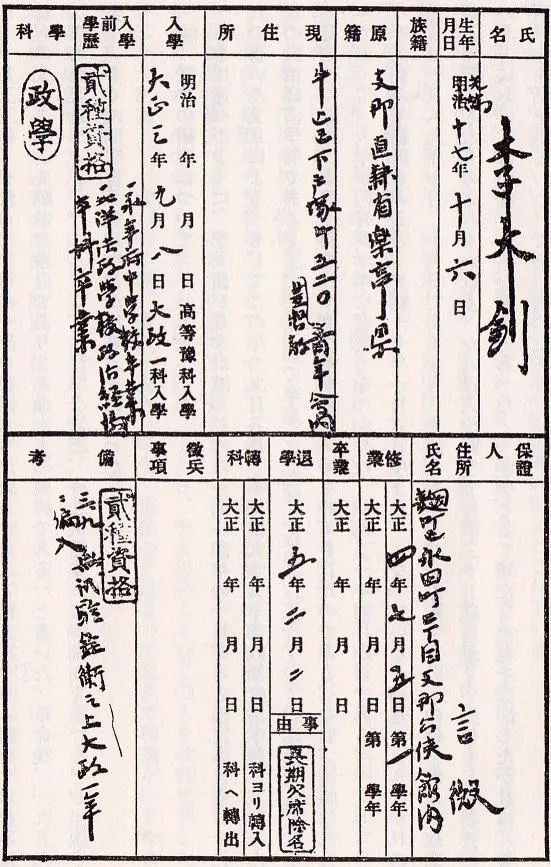 氏名
李大釗
生年月日
光緒
明治十七年十月六日
族籍
原籍
支那直隷省樂亭県
現住所
牛込区下戸塚町五二〇
青年會内
入學
明治 年 月 日高等豫科入學
大正三年九月八日大政一科入學
入學前學歷
貳種資格
一永平府中學校卒業
一北洋法政學校政治經濟
本科卒業
學科
政學
保證人
住所
氏名
麹町区永田町二丁目支那公使館内
言微
修業
大正四年七月五日第一學年
大正 年 月 日第 學年
卒業
大正 年 月 日
退學
大正五年二月二日
事由
長期欠席除名
轉科
大正 年 月 日 科ヨリ轉入
大正 年 月 日 科ヘ轉出
徵兵事項
備考
貳種資格
試驗銓衡之上大政一年
編入